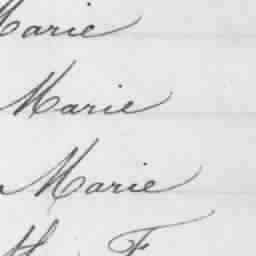 Marie
Marie
Marie